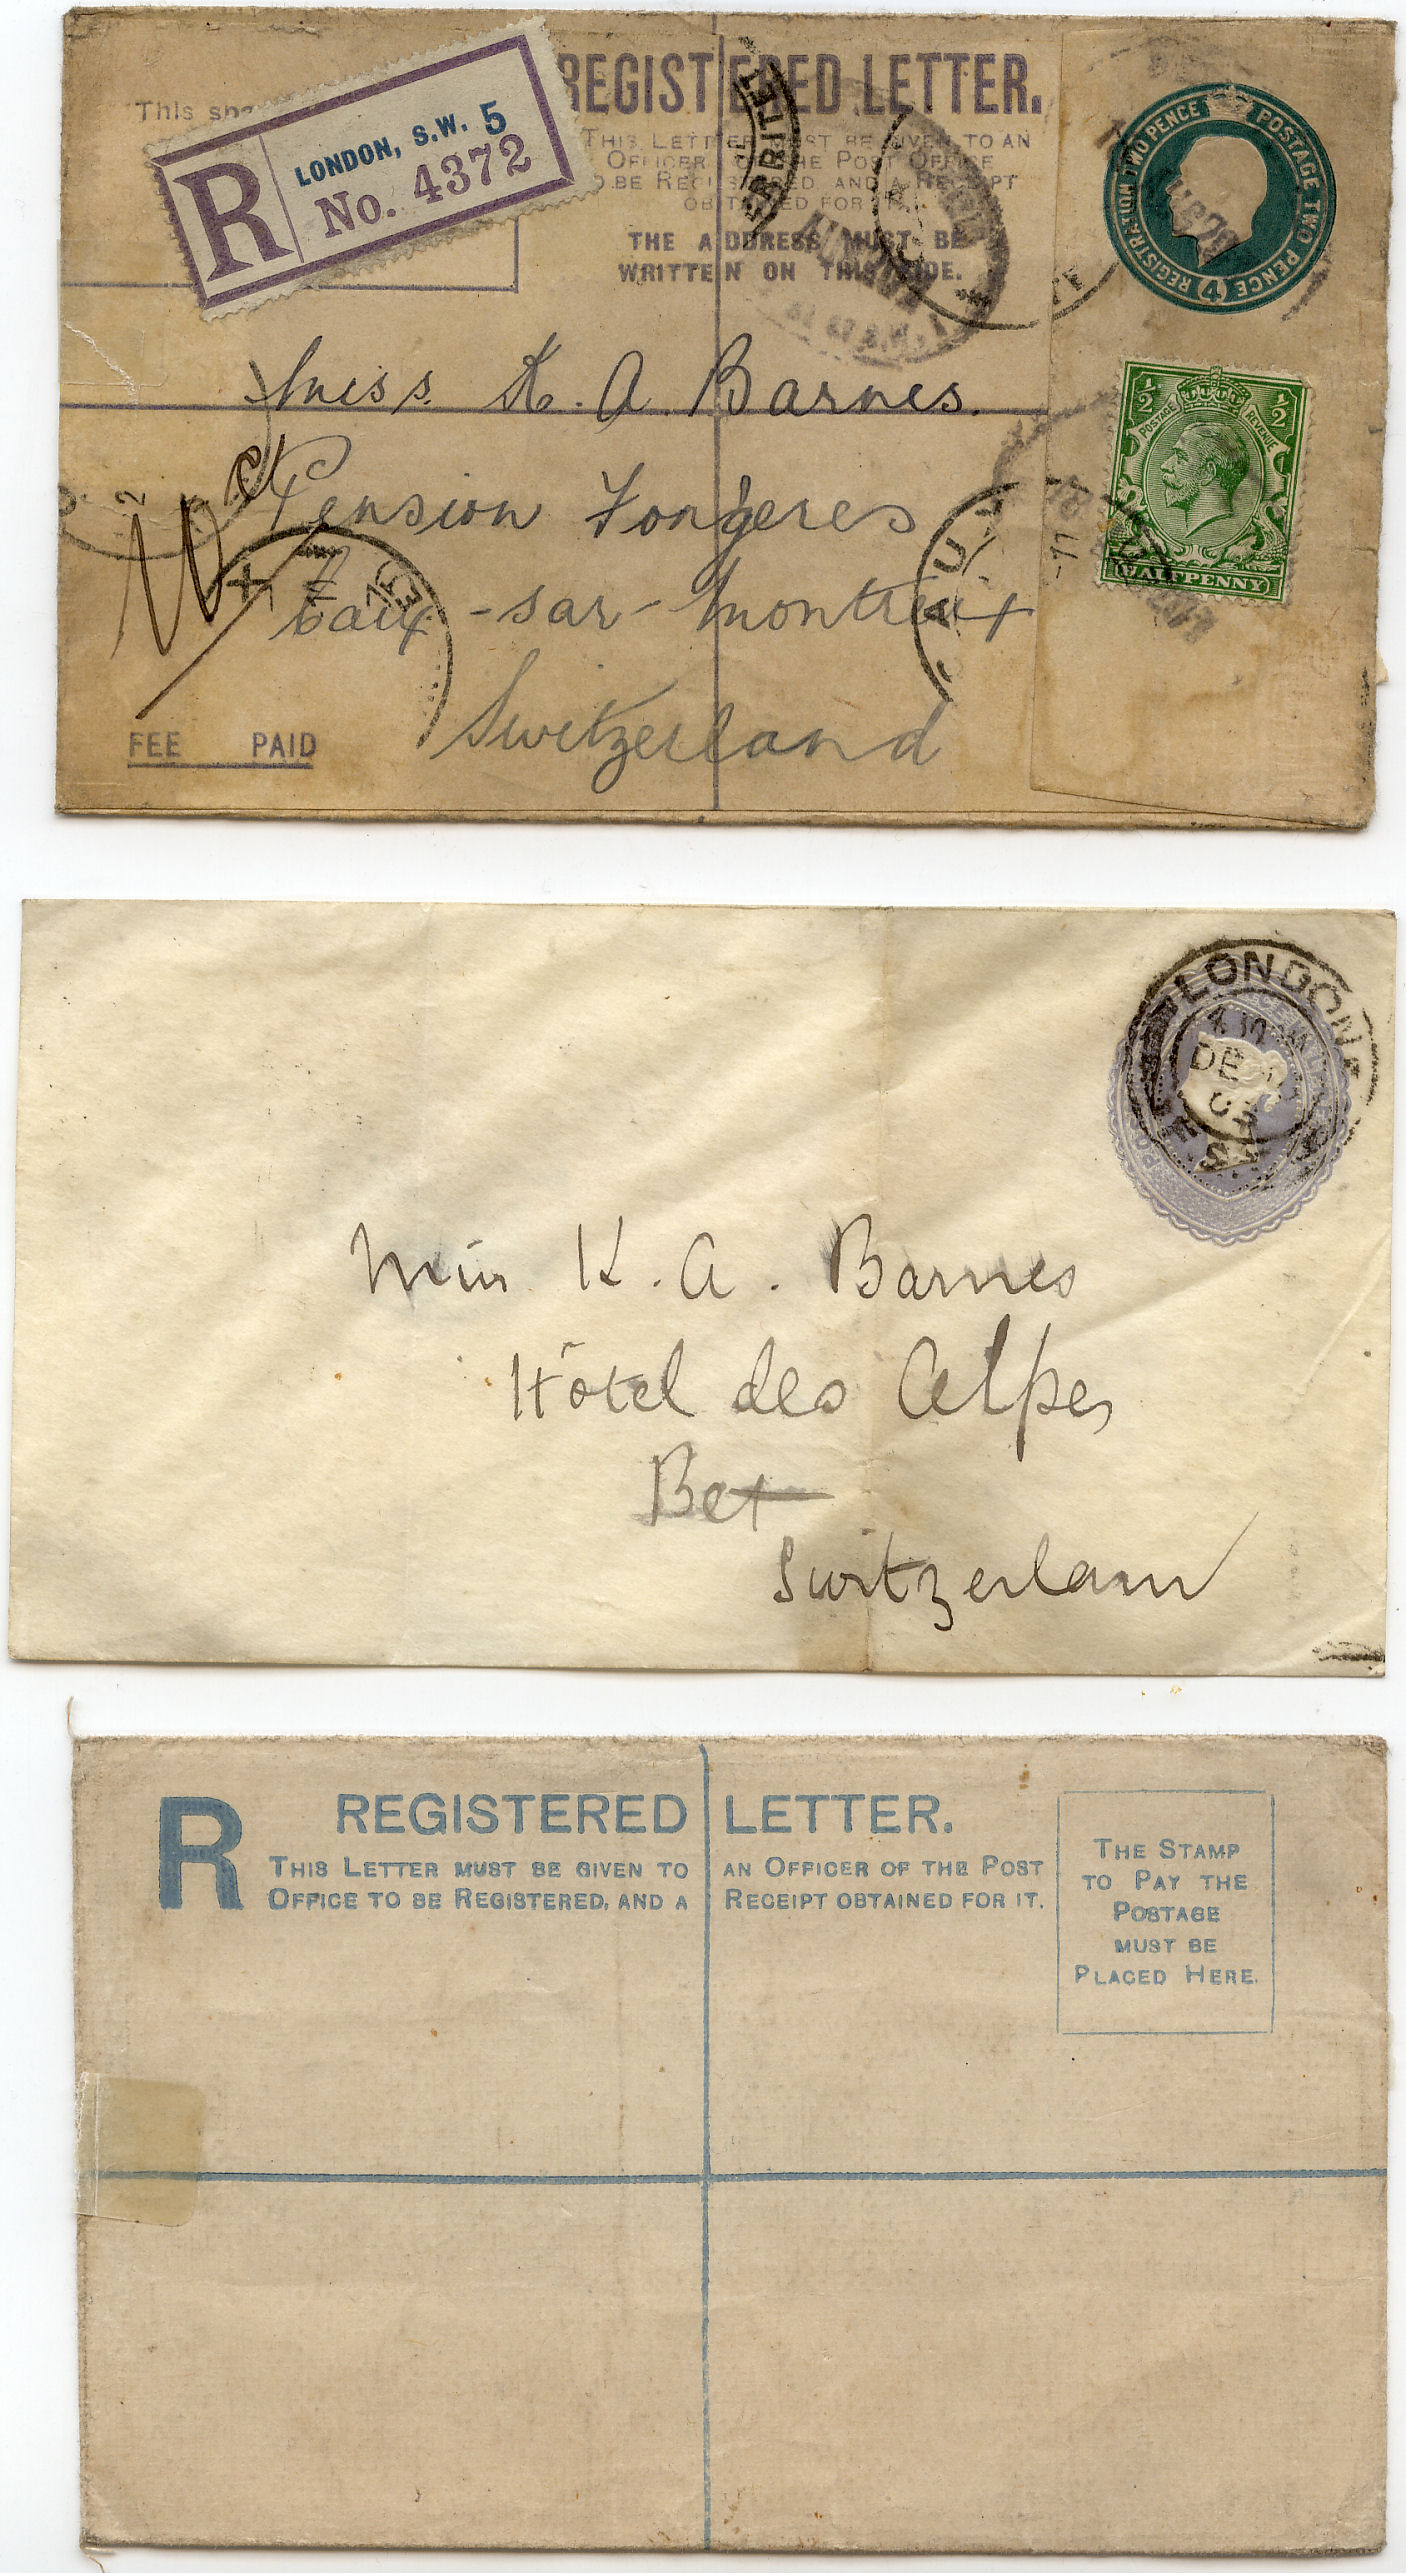 REGISTERED LETTER.
This spa
R
LONDON, S.W. 5
No. 4372
THIS LETTER MUST BE GIVEN TO AN
OFFICER OF THE POST OFFICE
TO BE REGISTERED AND A RECEIPT
OBTAINED FOR IT.
THE ADDRESS MUST BE
WRITTEN ON THIS SIDE.
REGISTRATION TWO PENCE POSTAGE TWO PENCE
4
½ ½
POSTAGE REVENUE
HALFPENNY
Miss. K. A. Barnes.
Pension Fongeres
Caux-sur-Montreux
Switzerland
CAUX
FEE PAID
LONDON
DE
Miss K. A. Barnes
Hôtel des Alpes
Bex
Switzerland
R
REGISTERED LETTER.
THIS LETTER MUST BE GIVEN TO AN OFFICER OF THE POST
OFFICE TO BE REGISTERED, AND A RECEIPT OBTAINED FOR IT.
THE STAMP
TO PAY THE
POSTAGE
MUST BE
PLACED HERE.